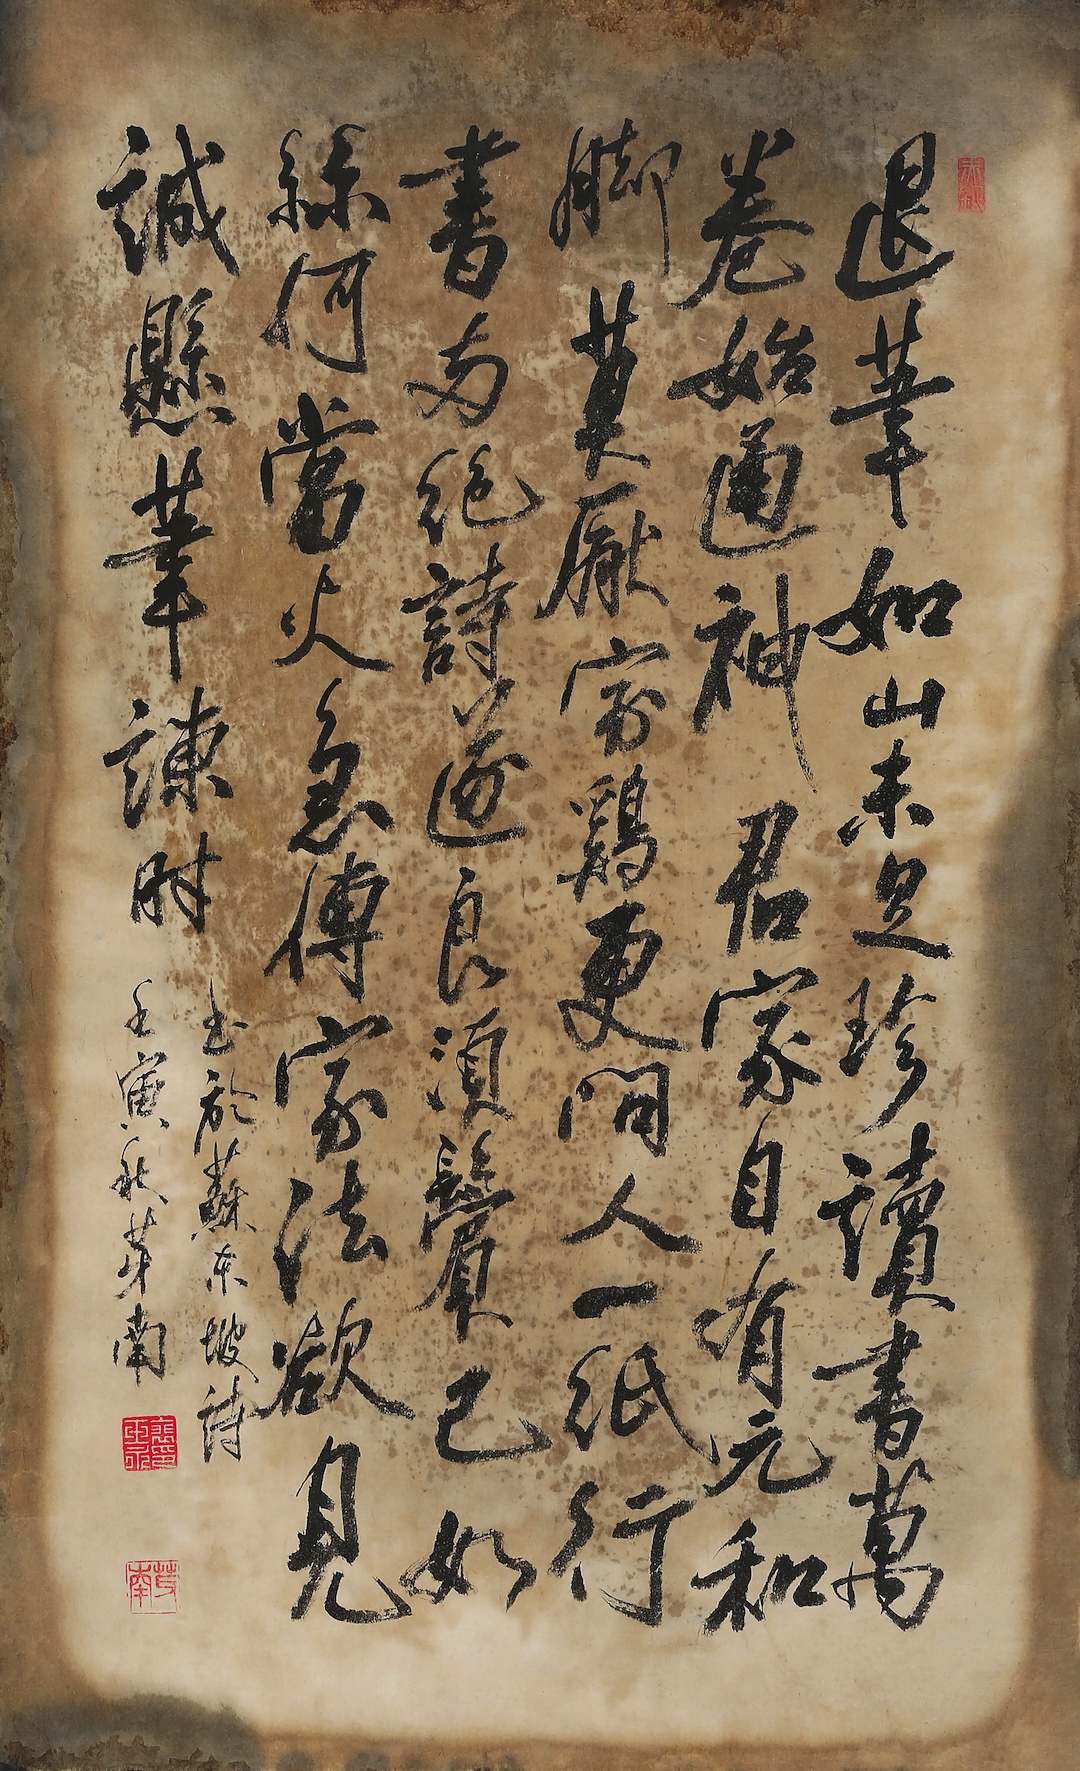 退筆如山未足珍讀書萬
卷始通神君家自有元和
脚莫厭家鷄更問人一紙行
書兩絕詩遂良須鬢已如
絲何當火急傳家法欲見
誠懸筆諫时
书於蘇東坡詩
壬寅秋南